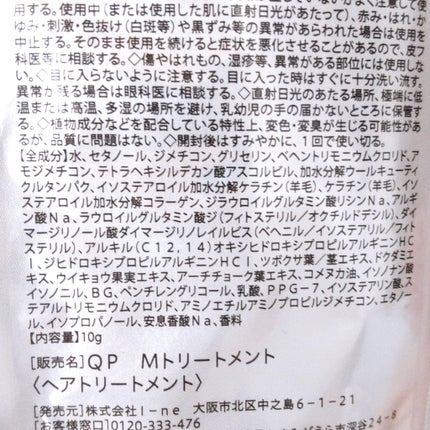 用する。使用中(または使用した肌に直射日光があたって)、赤み・はれ・か
ゆみ・刺激・色抜け(白斑等)や黒ずみ等の異常があらわれた場合は使用を
中止する。そのまま使用を続けると症状を悪化させることがあるので、皮フ
科医等に相談する。◇傷やはれもの、湿疹等、異常がある部位には使用しな
い。◇目に入らないように注意する。目に入った時はすぐに十分洗い流す。
異常が残る場合は眼科医に相談する。◇直射日光のあたる場所、極端に低
温または高温、多湿の場所を避け、乳幼児の手の届かないところに保管す
る。◇植物成分などを配合している特性上、変色・変臭が生じる可能性があ
るが、品質に問題はない。◇開封後はすみやかに、1回で使い切る。
【全成分】水、セタノール、ジメチコン、グリセリン、ベヘントリモニウムクロリド、ア
モジメチコン、テトラヘキシルデカン酸アスコルビル、加水分解ウールキューティ
クルタンパク、イソステアロイル加水分解ケラチン(羊毛)、ケラチン(羊毛)、イソ
ステアロイル加水分解コラーゲン、ジラウロイルグルタミン酸リシンNa、アルギ
ン酸Na、ラウロイルグルタミン酸ジ(フィトステリル/オクチルドデシル)、ダイ
マージリノール酸ダイマージリノレイルビス(ベヘニル/イソステアリル/フィト
ステリル)、アルキル(C12,14)オキシヒドロキシプロピルアルギニンHC
l、ジヒドロキシプロピルアルギニンHCl、ツボクサ葉/茎エキス、ドクダミエ
キス、ウイキョウ果実エキス、アーチチョーク葉エキス、コメヌカ油、イソノナン酸
イソノニル、BG、ペンチレングリコール、乳酸、PPG-7、イソステアリン酸、ス
テアルトリモニウムクロリド、アミノエチルアミノプロピルジメチコン、エタノー
ル、イソプロパノール、安息香酸Na、香料
【内容量】10g
[販売名]QP Mトリートメント
〈ヘアトリートメント〉
[発売元]株式会社I-ne 大阪市北区中之島6-1-21
[お客様窓口]0120-333-476